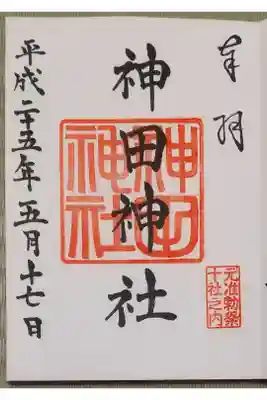 奉拝
元准勅祭
十社之内
神田神社
神田
神社
平成二十五年五月十七日